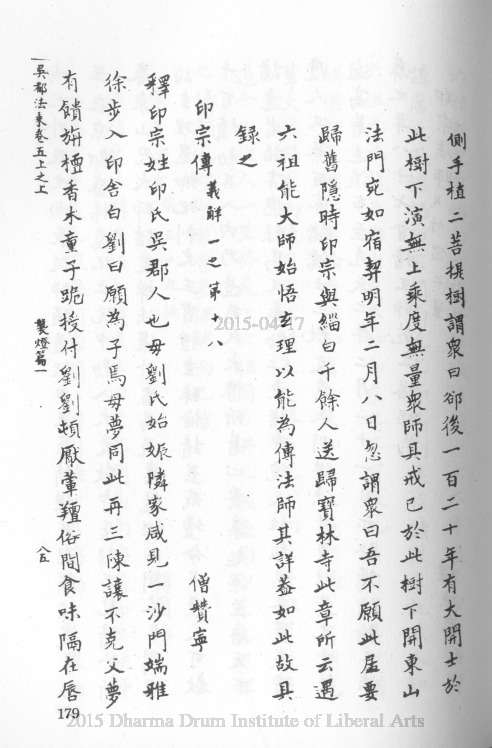 側手植二菩提樹謂眾曰卻後一百二十年有大開士於
此樹下演無上乘度無量眾師具戒已於此樹下開東山
法門宛如宿契明年二月八日忽謂眾曰吾不願此居要
歸舊隱時印宗與緇白千餘人送歸寶林寺此章所云遇
六祖能大師始悟玄理以能為傳法師其詳葢如此故具
錄之
印宗傳 義解 一之第十八 僧贊寧
釋印宗姓印氏吳郡人也母劉氏始娠隣家咸見一沙門端雅
徐步入印舍白劉曰願為子焉母夢同此再三陳讓不克父夢
有饋旃檀香木童子跪授付劉劉頓厭葷羶俗間食味隔在唇
吳都法乘卷五上之上
襲燈篇一
八五
179
2015-04-17
2015 Dharma Drum Institute of Liberal Arts